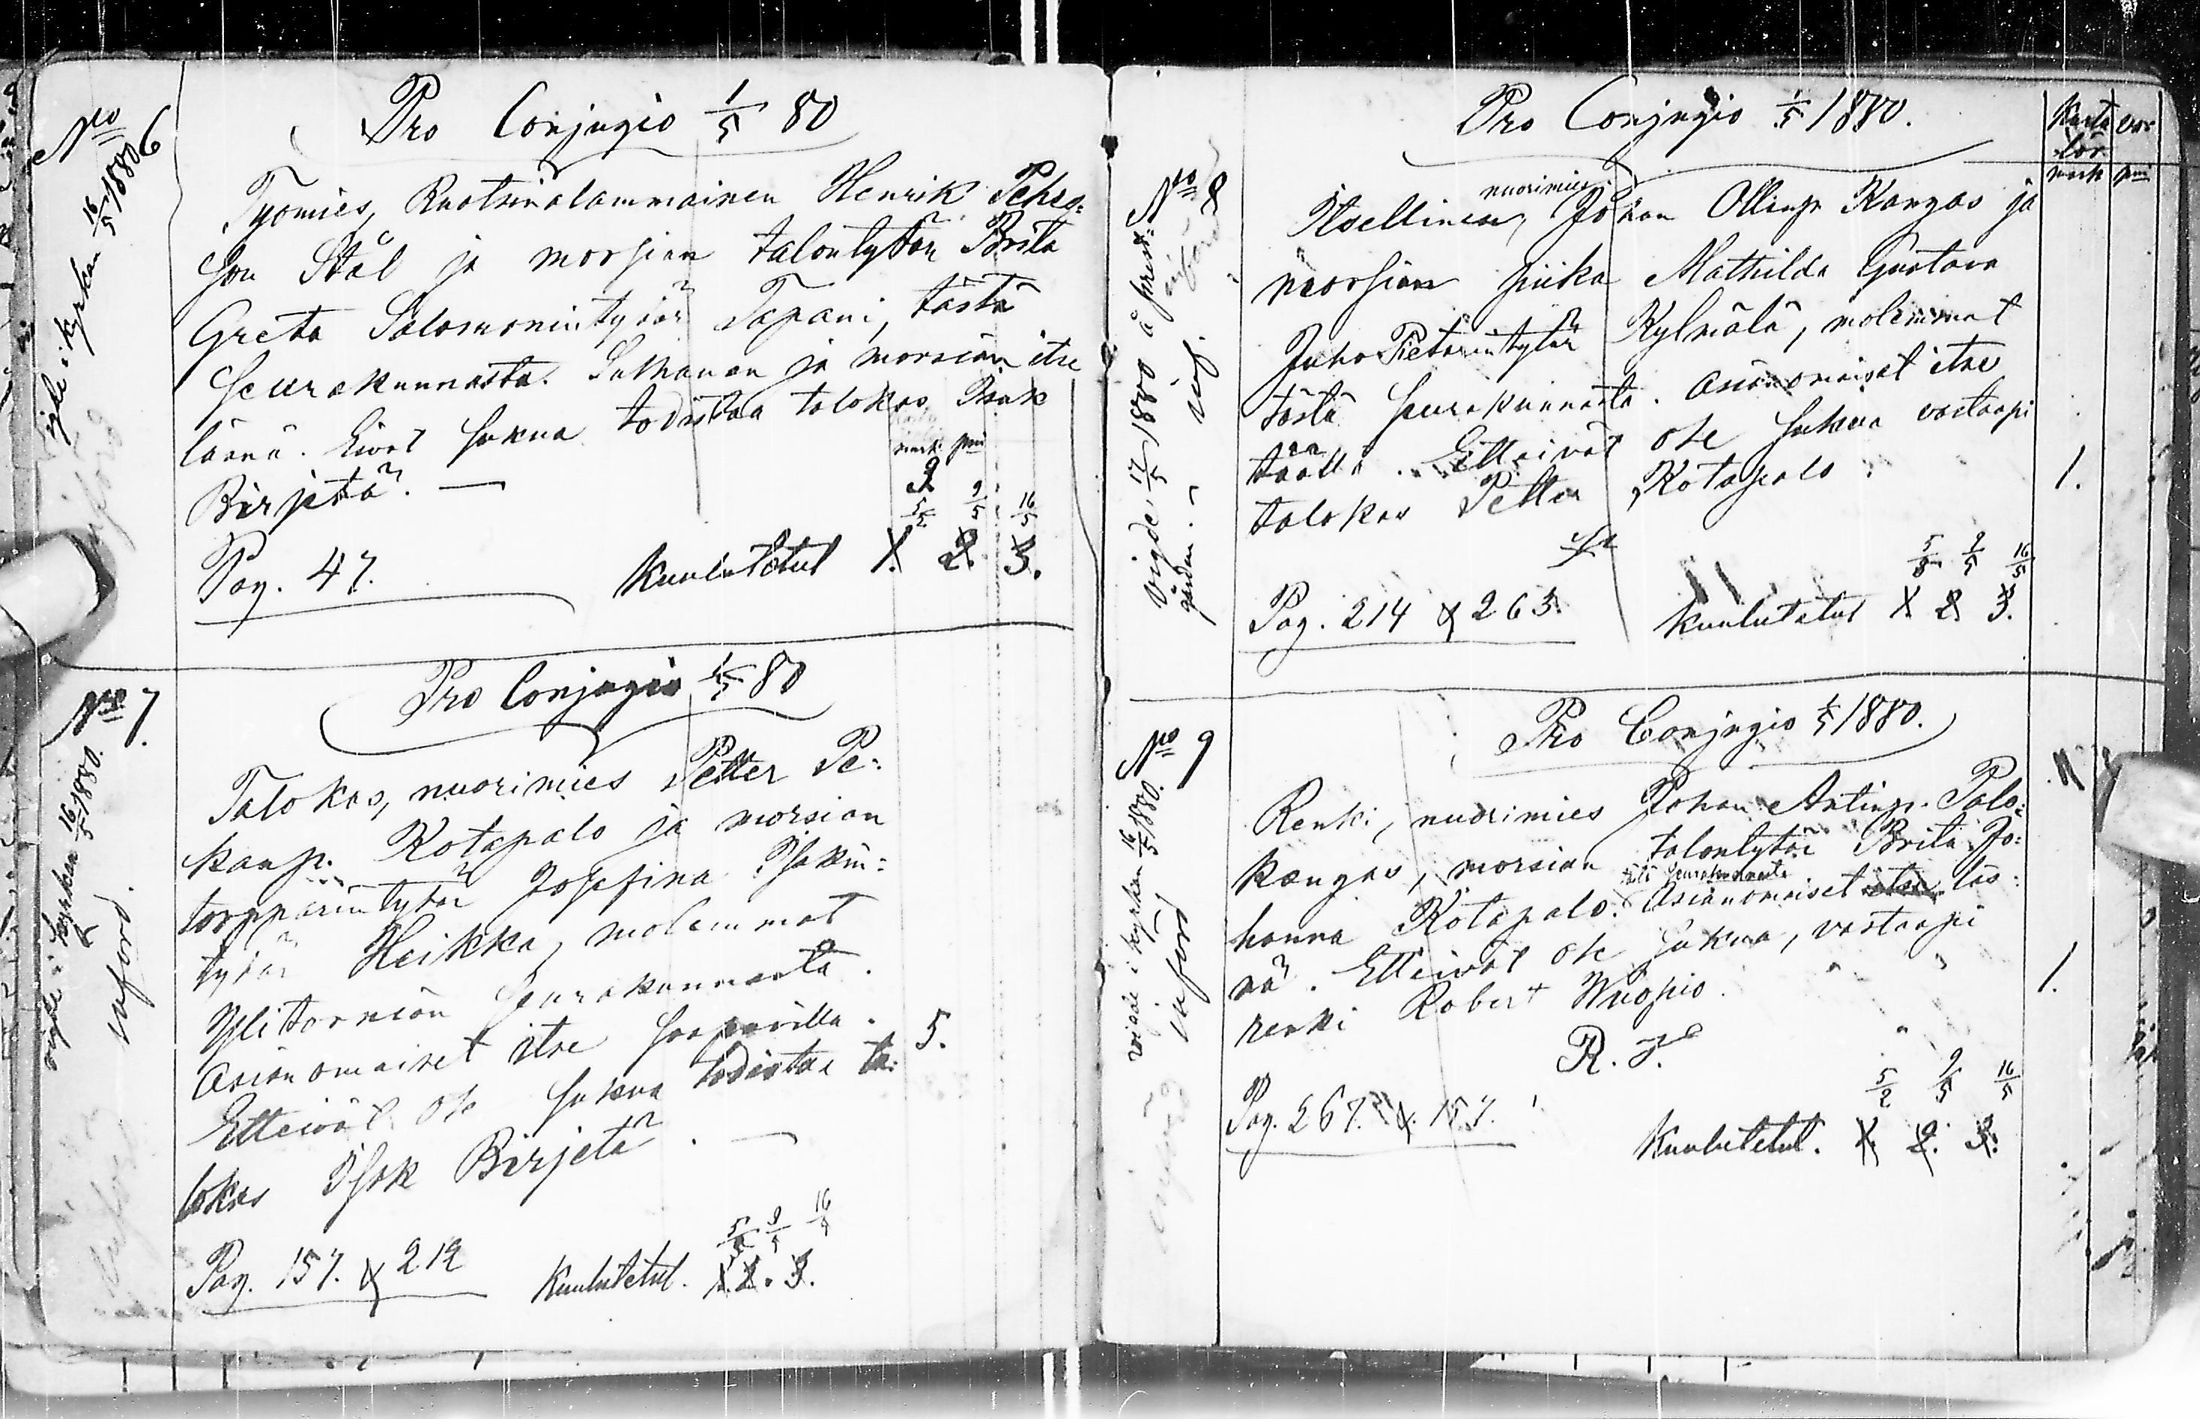 No 6
Vigde i kyrkan 16/5 1880
införd
Pro Conjugio 1/5 80
Työmies, Ruotsinalammainen Henrik Pehrs-
son Stål ja morsian talontytär Brita
Greta Salomonintytär Tapani, tästä
seurakunnasta. Sulhanen ja morsian itse
läsnä. Eivät sukua todistaa talokas Isak
Birjetä. —
mark pni
2
5/5 9/5 16/5
Pag. 47. Kuulutetut 1. 2. 3.
No 7.
vigde i kyrkan 16/5 1880.
införd.
Pro Conjugio 1/5 80
Talokas, nuorimies Petter Pe-
kanp. Kotapalo ja morsian
torpparintytär Josefina Isakin-
tytär Heikka, molemmat
Ylitornion seurakunnasta.
Asianomaiset itse saapuvilla.
Etteivät ole sukua todistaa ta-
lokas Isak Birjetä. —
5.
5/5 9/5 16/5
Pag. 157. & 212 Kuulutetut. 1. 2. 3.
No 8
vigde 17/5 1880 å prest-
gården. inf.
Pro Conjugio 1/5 1880.
mark pni
nuorimies
Itsellinen, Johan Ollinp. Kangas ja
morsian piika Mathilda Gustava
Juho Pietarintytär Kylmälä, molemmat
tästä seurakunnasta. Asianomaiset itse
täällä. Etteivät ole sukua vastaapi
talokas Petter Kotapalo.
1.
5/5 9/5 16/5
Pag. 214 & 263. Kuulutetut 1 2 3.
No 9
vigde i kyrkan 16/5 1880.
införd
Pro Conjugio 1/5 1880.
Renki, nuorimies Johan Antinp. Palo-
kangas, morsian talontytär Brita Jo-
tästä seurakunnasta
hanna Kotapalo. Asianomaiset itse läs-
nä. Etteivät ole sukua, vastaapi
renki Robert Wuopio.
1.
R. F.
5/2 9/5 16/5
Pag. 267. & 157. Kuulutetut. 1. 2. 3.